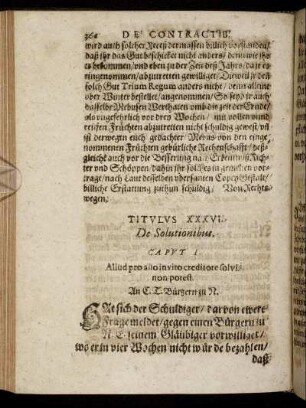 364 DE CONTRACTIB.
wird auch solcher Receß dermassen billich verstanden /
daß ihr das Gut beschicket nicht anders / denn wie ihrs
es bekommen / und eben zu der Zeit deß Jahrs / da ir es
eingenommen / abzutretten gewilliget / Dieweil jr deñ
solch Gut Trium Regum anders nicht / denn allein
uber Winter bestellet / angenommen / So seyd ir auch
dasselbe
als ungefehrlich vor drey Wochen / mit vollen und
reiffen Früchten abzutretten nicht schuldig
ist derwegen euch gedachter von den einge-
nommenen Früchten gebürliche Rechenschafft / deß-
gleicht auch vor die Besserung nach Erkentniß Rich-
ter und Schöppen / dahin ihr solches
trage / nach Laut desselben ubersanten Copey Gestalt /
billiche Erstattung zuthun schuldig / Von Rechts-
wegen.
TITVLVS XXXVI.
De Solutionibus.
CAPVT I.
Aliud pro alio invito creditore solvi
non potest.
An C. T. Bürgern zu N.
HAt sich der Schuldiger / darvon ewere
Frage meldet / gegen einen Bürgern zu
N. E. seinem Gläubiger vorwilliget /
wo er in vier Wochen nicht würde bezahlen /
daß